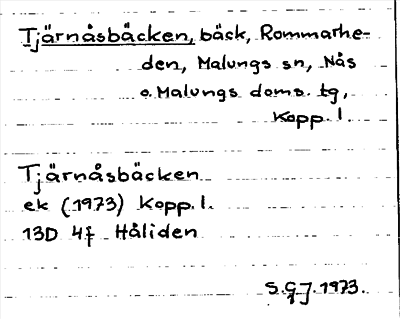 Tjärnåsbäcken, bäck, Rommarhe-
den, Malungs sn, Nås
o. Malungs doms. tg,
Kopp. l.
Tjärnåsbäcken
ek (1973) Kopp. l.
13D 4f Håliden
S.G.J. 1973.